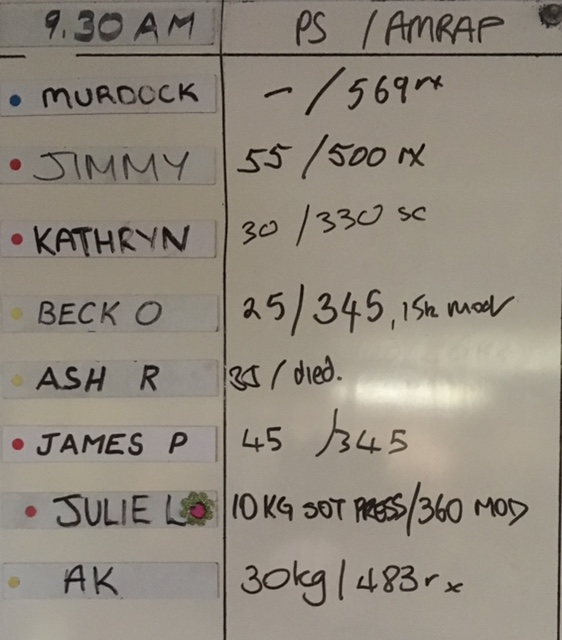 9.30 AM PS / AMRAP
MURDOCK - / 569 rx
JIMMY 55 / 500 rx
KATHRYN 30 / 330 sc
BECK O 25 / 345, 15k mod
ASH R 35 / died.
JAMES P 45 / 345
JULIE L 10 KG SOT PRESS / 360 MOD
AK 30kg / 483 rx